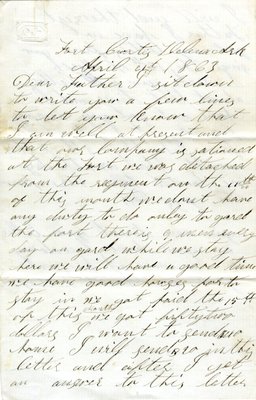 Fort Curtis Helena Ark
April 1863
Dear Father I sit down
to write you a few lines
to let you know that
I am well at present and
that our company is stationed
at the fort we was detached
from the regiment on the 11th
of this month we dont have
any duty to do onley to gard
the fort there is 9 men every
day on gard while we stay
here we will have a good time
we have good houses for to
stay in we got paid the 15th
of this month we got fiftytwo
dollars I want to send
home I will send in this
letter and after I get
an answer to this letter